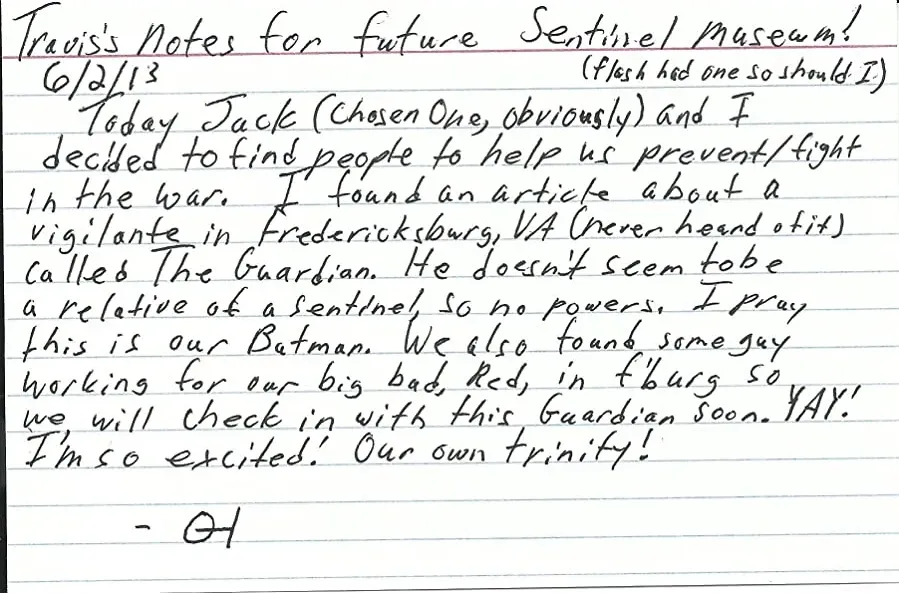 Travis's Notes for future Sentinel Museum!
6/2/13 (flash had one so should I)
Today Jack (Chosen One, obviously) and I
decided to find people to help us prevent/fight
in the war. I found an article about a
vigilante in Fredericksburg, VA (never heard of it)
called The Guardian. He doesn't seem to be
a relative of a Sentinel, so no powers. I pray
this is our Batman. We also found some guy
working for our big bad, Red, in f'burg so
we will check in with this Guardian soon. YAY!
I'm so excited! Our own trinity!
-